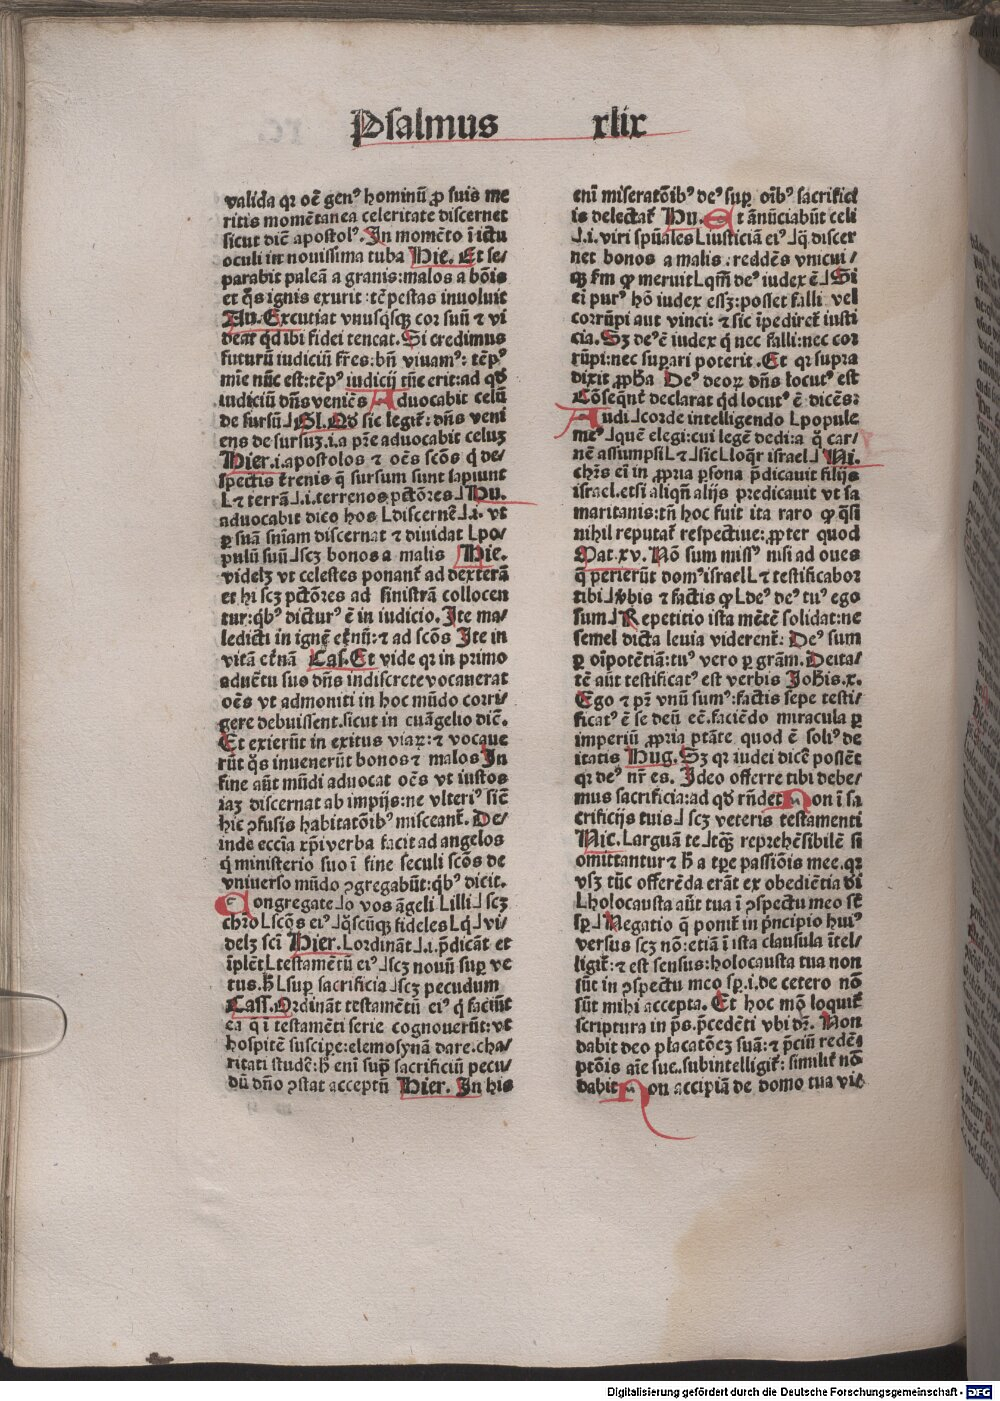 Psalmus xlix
valida qꝛ oē genꝰ hominū ꝓ suis me
ritis momētanea celeritate discernet
sicut dicē apostolꝰ. In momēto ī ictu
oculi in nouissima tuba Hie. Et se/
parabit paleā a granis: malos a bōis
et q̄s ignis exurit: tēpestas inuoluit
Au. Excutiat vnusqsqꝫ cor suū ⁊ vi
deat qd ibi fidei teneat. Si credimus
futurū iudiciū fr̄es: bn̄ viuamꝰ: tēpꝰ
mīe nūc est: tēpꝰ iudicij tn̄e erit: ad qd
iudiciū dn̄s veniēs Aduocabit celū
de sursū ⅃ Gl. Qd sic legit᷑: dn̄s veni
ens de sursuꝫ .i. a pr̄e aduocabit celuꝫ
Hier. i. apostolos ⁊ oēs scōs q̇ de/
spectis t̄renis q̄ sursum sunt sapiunt
L ⁊ terrā ⅃ .i. terrenos pctōres ⅃ Hu.
aduocabit dico hos L discernē ⅃ .i. vt
ꝑ suā sniam discernat ⁊ diuidat L po/
pulū suū ⅃ scꝫ bonos a malis Hie.
videlꝫ vt celestes ponant᷑ ad dexterā
et hi scꝫ pctōres ad sinistrā collocen
tur: qbꝰ dicturꝰ ē in iudicio. Ite ma/
ledicti in ignē et̄nū: ⁊ ad scōs Ite in
vitā et̄nā Cas. Et vide qꝛ in primo
aduētu suo dn̄s indiscrete vocauerat
oēs vt admoniti in hoc mūdo corri/
gere debuissent. sicut in euāgelio dicē.
Et exierūt in exitus viaꝝ: ⁊ vocaue
rūt q̄s inuenerūt bonos ⁊ malos In
fine aūt mūdi aduocat oēs vt iustos
iaꝫ discernat ab impijs: ne vlteriꝰ sicē
hic ꝯfusis habitatōibꝰ misceant᷑. De/
inde eccīa xp̄i verba facit ad angelos
q̇ ministerio suo ī fine seculi scōs de
vniuerso mūdo ꝯgregabūt: qbꝰ dicit.
Congregate ⅃ o vos āgeli L illi ⅃ scꝫ
chr̄o L scōs eiꝰ ⅃ q̄scūqꝫ fideles L q̇ ⅃ vi/
delꝫ sci Hier. L ordināt ⅃ .i. p̄dicāt et
īplēt L testamētū eiꝰ ⅃ scꝫ nouū suꝑ ve
tus. h̄ L suꝑ sacrificia ⅃ scꝫ pecudum
Cass. Ordināt testamētū eiꝰ q̇ faciūt
ea q̄ ī testamēti serie cognouerūt: vt
hospitē suscipe: elemosynā dare. cha/
ritati studē: h̄ enī suꝑ sacrificiū pecu/
dū dn̄o ꝯstat acceptū Hier. In his
enī miseratōibꝰ deꝰ suꝑ oībꝰ sacrifici
is delectat᷑ Hu. Et ānūciabūt celi
⅃ .i. viri spūales L iusticiā eiꝰ ⅃ q̄ discer
net bonos a malis. reddēs vnicui/
qꝫ fm ꝙ meruit L qm̄ deꝰ iudex ē ⅃ Si
ei purꝰ hō iudex eēꝫ: posset falli vel
corrūpi aut vinci: ⁊ sic īpediret᷑ iusti
cia. Sꝫ deꝰ ē iudex q̇ nec falli: nec cor
rūpi: nec suꝑari poterit. Et qꝛ supra
dixit ꝓpha Deꝰ deoꝝ dn̄s locutꝰ est
Cōsequēt᷑ declarat qd locutꝰ ē dicēs:
Audi ⅃ corde intelligendo L popule
meꝰ ⅃ quē elegi: cui legē dedi: a q̇ car/
nē assumpsi L ⁊ ⅃ sic L loqr israel ⅃ Ni.
chr̄s ei in ꝓpria ꝑsona p̄dicauit filijs
israel. etsi aliqn̄ alijs predicauit vt sa
maritanis: tn̄ hoc fuit ita raro ꝙ q̄si
nihil reputat᷑ respectiue: ꝓpter quod
Mat. xv. Nō sum missꝰ nisi ad oues
q̄ perierūt domꝰ israel L ⁊ testificabor
tibi ⅃ v̄bis ⁊ factis ꝙ L deꝰ deꝰ tuꝰ ego
sum ⅃ Repetitio ista mētē solidat: ne
semel dicta leuia viderent᷑: Deꝰ sum
ꝑ oīpotētiā: tuꝰ vero ꝑ grām. Deita/
tē aūt testificatꝰ est verbis Johīs. x.
Ego ⁊ pr̄ vnū sumꝰ: factis sepe testi/
ficatꝰ ē se deū eē. faciēdo miracula ꝑ
imperiū ꝓpria ptāte quod ē soliꝰ de
itatis Hug. Sꝫ qꝛ iudei dicē possēt
qꝛ deꝰ nr̄ es. Ideo offerre tibi debe/
mus sacrificia: ad qd rn̄det Non ī sa
crificijs tuis ⅃ scꝫ veteris testamenti
Nic. L arguā te ⅃ tqꝫ reprehēsibilē si
omittantur ⁊ h̄ a tpe passiōis mee. qꝛ
vsꝫ tūc offerēda erāt ex obediētia di
L holocausta aūt tua ī ꝯspectu meo sē
sꝑ ⅃ Negatio q̄ ponit᷑ in p̄ncipio huiꝰ
versus scꝫ nō: etiā ī ista clausula ītel/
ligit᷑: ⁊ est sensus: holocausta tua non
sūt in ꝯspectu meo sꝑ .i. de cetero nō
sūt mihi accepta. Et hoc mō loquit᷑
scriptura in ps. p̄cedēti vbi dr̄. Non
dabit deo placatōeꝫ suā: ⁊ p̄ciū redēs
ptōis aīe sue. subintelligit᷑: similit᷑ nō
dabit Non accipiā de domo tua vi⸗
Digitalisierung gefördert durch die Deutsche Forschungsgemeinschaft - DFG